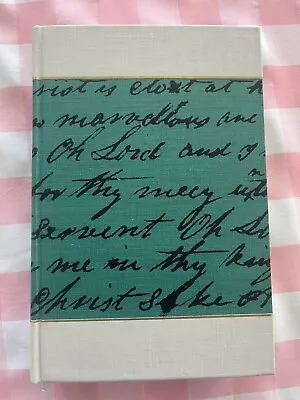 rist is close at h
marvellous are
Oh Lord and I
for thy mercy
servent Oh Lo
me in thy king
Christ Sake